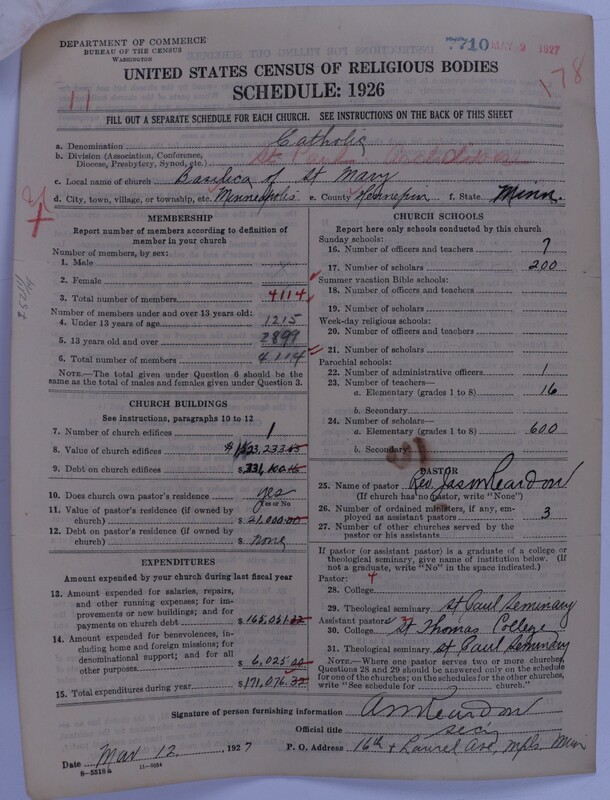 DEPARTMENT OF COMMERCE
BUREAU OF THE CENSUS
WASHINGTON
710 MAY 2 1927
178
11
UNITED STATES CENSUS OF RELIGIOUS BODIES
SCHEDULE: 1926
FILL OUT A SEPARATE SCHEDULE FOR EACH CHURCH. SEE INSTRUCTIONS ON THE BACK OF THIS SHEET
a. Denomination Catholic
b. Division (Association, Conference, Diocese, Presbytery, Synod, etc.) St Paul Archdiocese
c. Local name of church Basilica of St Mary
d. City, town, village, or township, etc. Minneapolis e. County Hennepin f. State Minn.
MEMBERSHIP
Report number of members according to definition of member in your church
Number of members, by sex:
1. Male
2. Female
3. Total number of members 4114
Number of members under and over 13 years old:
4. Under 13 years of age 1215
5. 13 years old and over 2899
6. Total number of members 4114
NOTE.—The total given under Question 6 should be the same as the total of males and females given under Question 3.
CHURCH BUILDINGS
See instructions, paragraphs 10 to 12
7. Number of church edifices 1
8. Value of church edifices
9. Debt on church edifices
10. Does church own pastor's residence yes
Yes or No
11. Value of pastor's residence (if owned by church) $ 21,000.00
12. Debt on pastor's residence (if owned by church) $ none
EXPENDITURES
Amount expended by your church during last fiscal year
13. Amount expended for salaries, repairs, and other running expenses; for improvements or new buildings; and for payments on church debt $ 165,051.32
14. Amount expended for benevolences, including home and foreign missions; for denominational support; and for all other purposes $ 6,025.00
15. Total expenditures during year $ 171,076.32
CHURCH SCHOOLS
Report here only schools conducted by this church
Sunday schools:
16. Number of officers and teachers 7
17. Number of scholars 200
Summer vacation Bible schools:
18. Number of officers and teachers
19. Number of scholars
Week-day religious schools:
20. Number of officers and teachers
21. Number of scholars
Parochial schools:
22. Number of administrative officers 1
23. Number of teachers—
a. Elementary (grades 1 to 8) 16
b. Secondary
24. Number of scholars—
a. Elementary (grades 1 to 8) 600
b. Secondary
PASTOR
25. Name of pastor Rev. Jas M Reardon
(If church has no pastor, write "None")
26. Number of ordained ministers, if any, employed as assistant pastors 3
27. Number of other churches served by the pastor or his assistants
If pastor (or assistant pastor) is a graduate of a college or theological seminary, give name of institution below. (If not a graduate, write "No" in the space indicated.)
Pastor:
28. College
29. Theological seminary St Paul Seminary
Assistant pastor:
30. College St Thomas College
31. Theological seminary St Paul Seminary
NOTE.—Where one pastor serves two or more churches, Questions 28 and 29 should be answered only on the schedule for one of the churches; on the schedules for the other churches, write "See schedule for ____ church."
Signature of person furnishing information A M Reardon
Official title secy
Date Mar 12 1927 P. O. Address 16th & Laurel Ave, Mpls Minn
8-5518a 11-9654